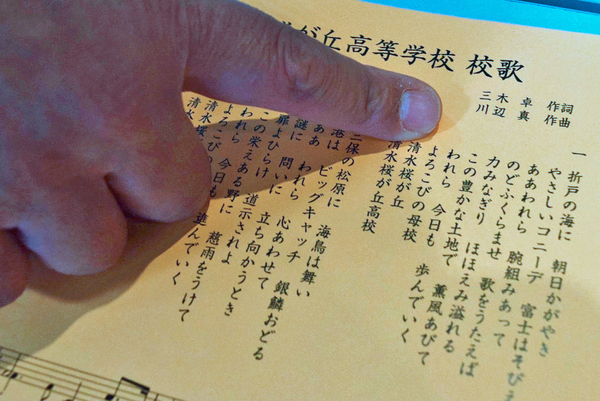 が丘高等学校 校歌
三木 卓 作詞
川辺 真 作曲
一 折戸の海に 朝日かがやき
やさしいコニーデ 富士はそびえ
ああわれら 腕組みあって
のどふくらませ 歌をうたえば
力みなぎり ほほえみ溢れる
この豊かな土地で 薫風あびて
われら 今日も 歩んでいく
よろこびの母校
清水桜が丘
清水桜が丘高校
三保の松原に 海鳥は舞い
港は ビッグキャッチ 銀鱗おどる
ああ われら 心あわせて
謎に 問いに 立ち向かうとき
扉よひらけ 道示されよ
この栄えある野に 慈雨をうけて
われら 今日も 進んでいく
よろこび
清水桜が
清水桜